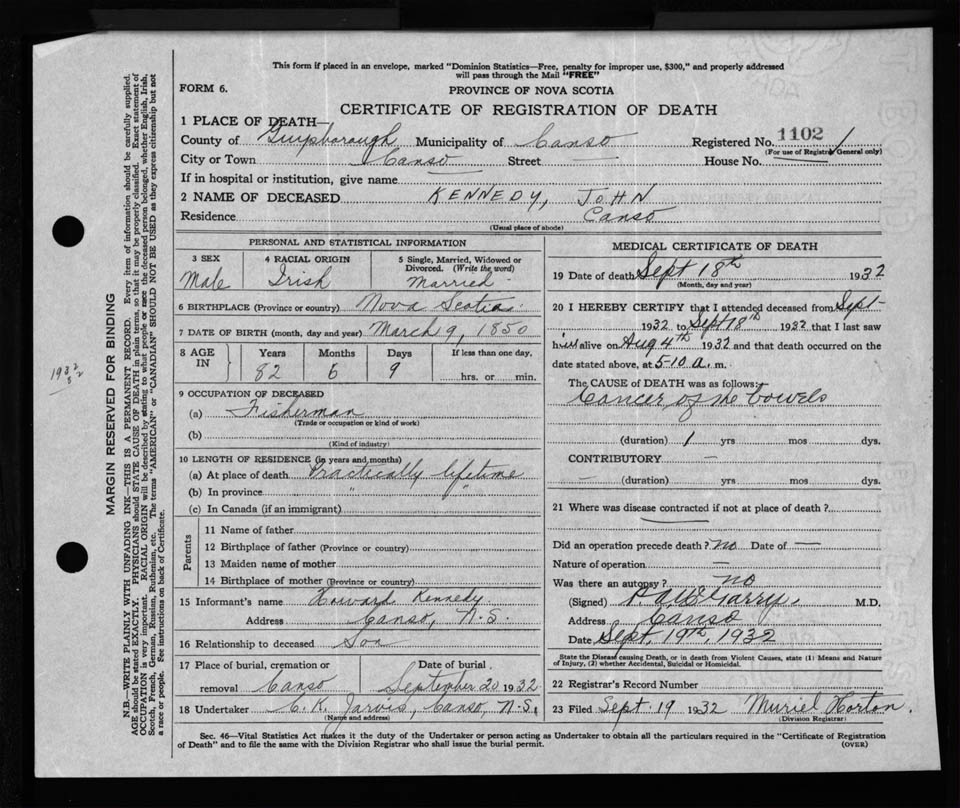 This form if placed in an envelope, marked "Dominion Statistics—Free, penalty for improper use, $300," and properly addressed
will pass through the Mail "FREE"
FORM 6.
PROVINCE OF NOVA SCOTIA
CERTIFICATE OF REGISTRATION OF DEATH
1 PLACE OF DEATH—
County of Guysborough Municipality of Canso Registered No. 1102 1
(For use of Registrar General only)
City or Town Canso Street House No.
If in hospital or institution, give name
2 NAME OF DECEASED KENNEDY, JOHN
Residence Canso
(Usual place of abode)
PERSONAL AND STATISTICAL INFORMATION
3 SEX 4 RACIAL ORIGIN 5 Single, Married, Widowed or
Divorced. (Write the word)
Male Irish Married
6 BIRTHPLACE (Province or country) Nova Scotia
7 DATE OF BIRTH (month, day and year) March 9, 1850
8 AGE IN Years Months Days If less than one day,
82 6 9 hrs. or min.
9 OCCUPATION OF DECEASED
(a) Fisherman
(Trade or occupation or kind of work)
(b)
(Kind of industry)
10 LENGTH OF RESIDENCE (in years and months)
(a) At place of death Practically lifetime
(b) In province " "
(c) In Canada (if an immigrant)
Parents
11 Name of father
12 Birthplace of father (Province or country)
13 Maiden name of mother
14 Birthplace of mother (Province or country)
15 Informant's name Howard Kennedy
Address Canso, N.S.
16 Relationship to deceased Son
17 Place of burial, cremation or Date of burial
removal Canso September 20 1932
18 Undertaker C. K. Jarvis, Canso, N.S.
(Name and address)
MEDICAL CERTIFICATE OF DEATH
19 Date of death Sept 18th 1932
(Month, day and year)
20 I HEREBY CERTIFY that I attended deceased from Sept
1932 to Sept 18th 1932 that I last saw
him alive on Aug 4th 1932 and that death occurred on
date stated above, at 5-10 a. m.
The CAUSE of DEATH was as follows:
Cancer of the bowels
(duration) 1 yrs mos dys.
CONTRIBUTORY —
— (duration) yrs. mos. dys.
21 Where was disease contracted if not at place of death?
Did an operation precede death? no Date of —
Nature of operation —
Was there an autopsy? no
(Signed) M.D.
Address Canso
Date Sept. 19th, 1932
State the Disease causing Death, or in death from Violent Causes, state (1) Means and Nature
of Injury, (2) whether Accidental, Suicidal or Homicidal.
22 Registrar's Record Number
23 Filed Sept. 19 1932 Muriel Horton.
(Division Registrar)
Sec. 46—Vital Statistics Act makes it the duty of the Undertaker or person acting as Undertaker to obtain all the particulars required in the "Certificate of Registration
of Death" and to file the same with the Division Registrar who shall issue the burial permit.
(OVER)
MARGIN RESERVED FOR BINDING
N.B.—WRITE PLAINLY WITH UNFADING INK—THIS IS A PERMANENT RECORD. Every item of information should be carefully supplied.
AGE should be stated EXACTLY. PHYSICIANS should STATE CAUSE OF DEATH in plain terms, so that it may be properly classified. Exact statement of
OCCUPATION is very important. RACIAL ORIGIN will be described by stating to what people or race the deceased person belonged, whether English, Irish,
Scotch, French, German, Russian, Ruthenian, etc. The terms "AMERICAN" or "CANADIAN" SHOULD NOT BE USED as they express citizenship but not
a race or people. See instructions on back of Certificate.